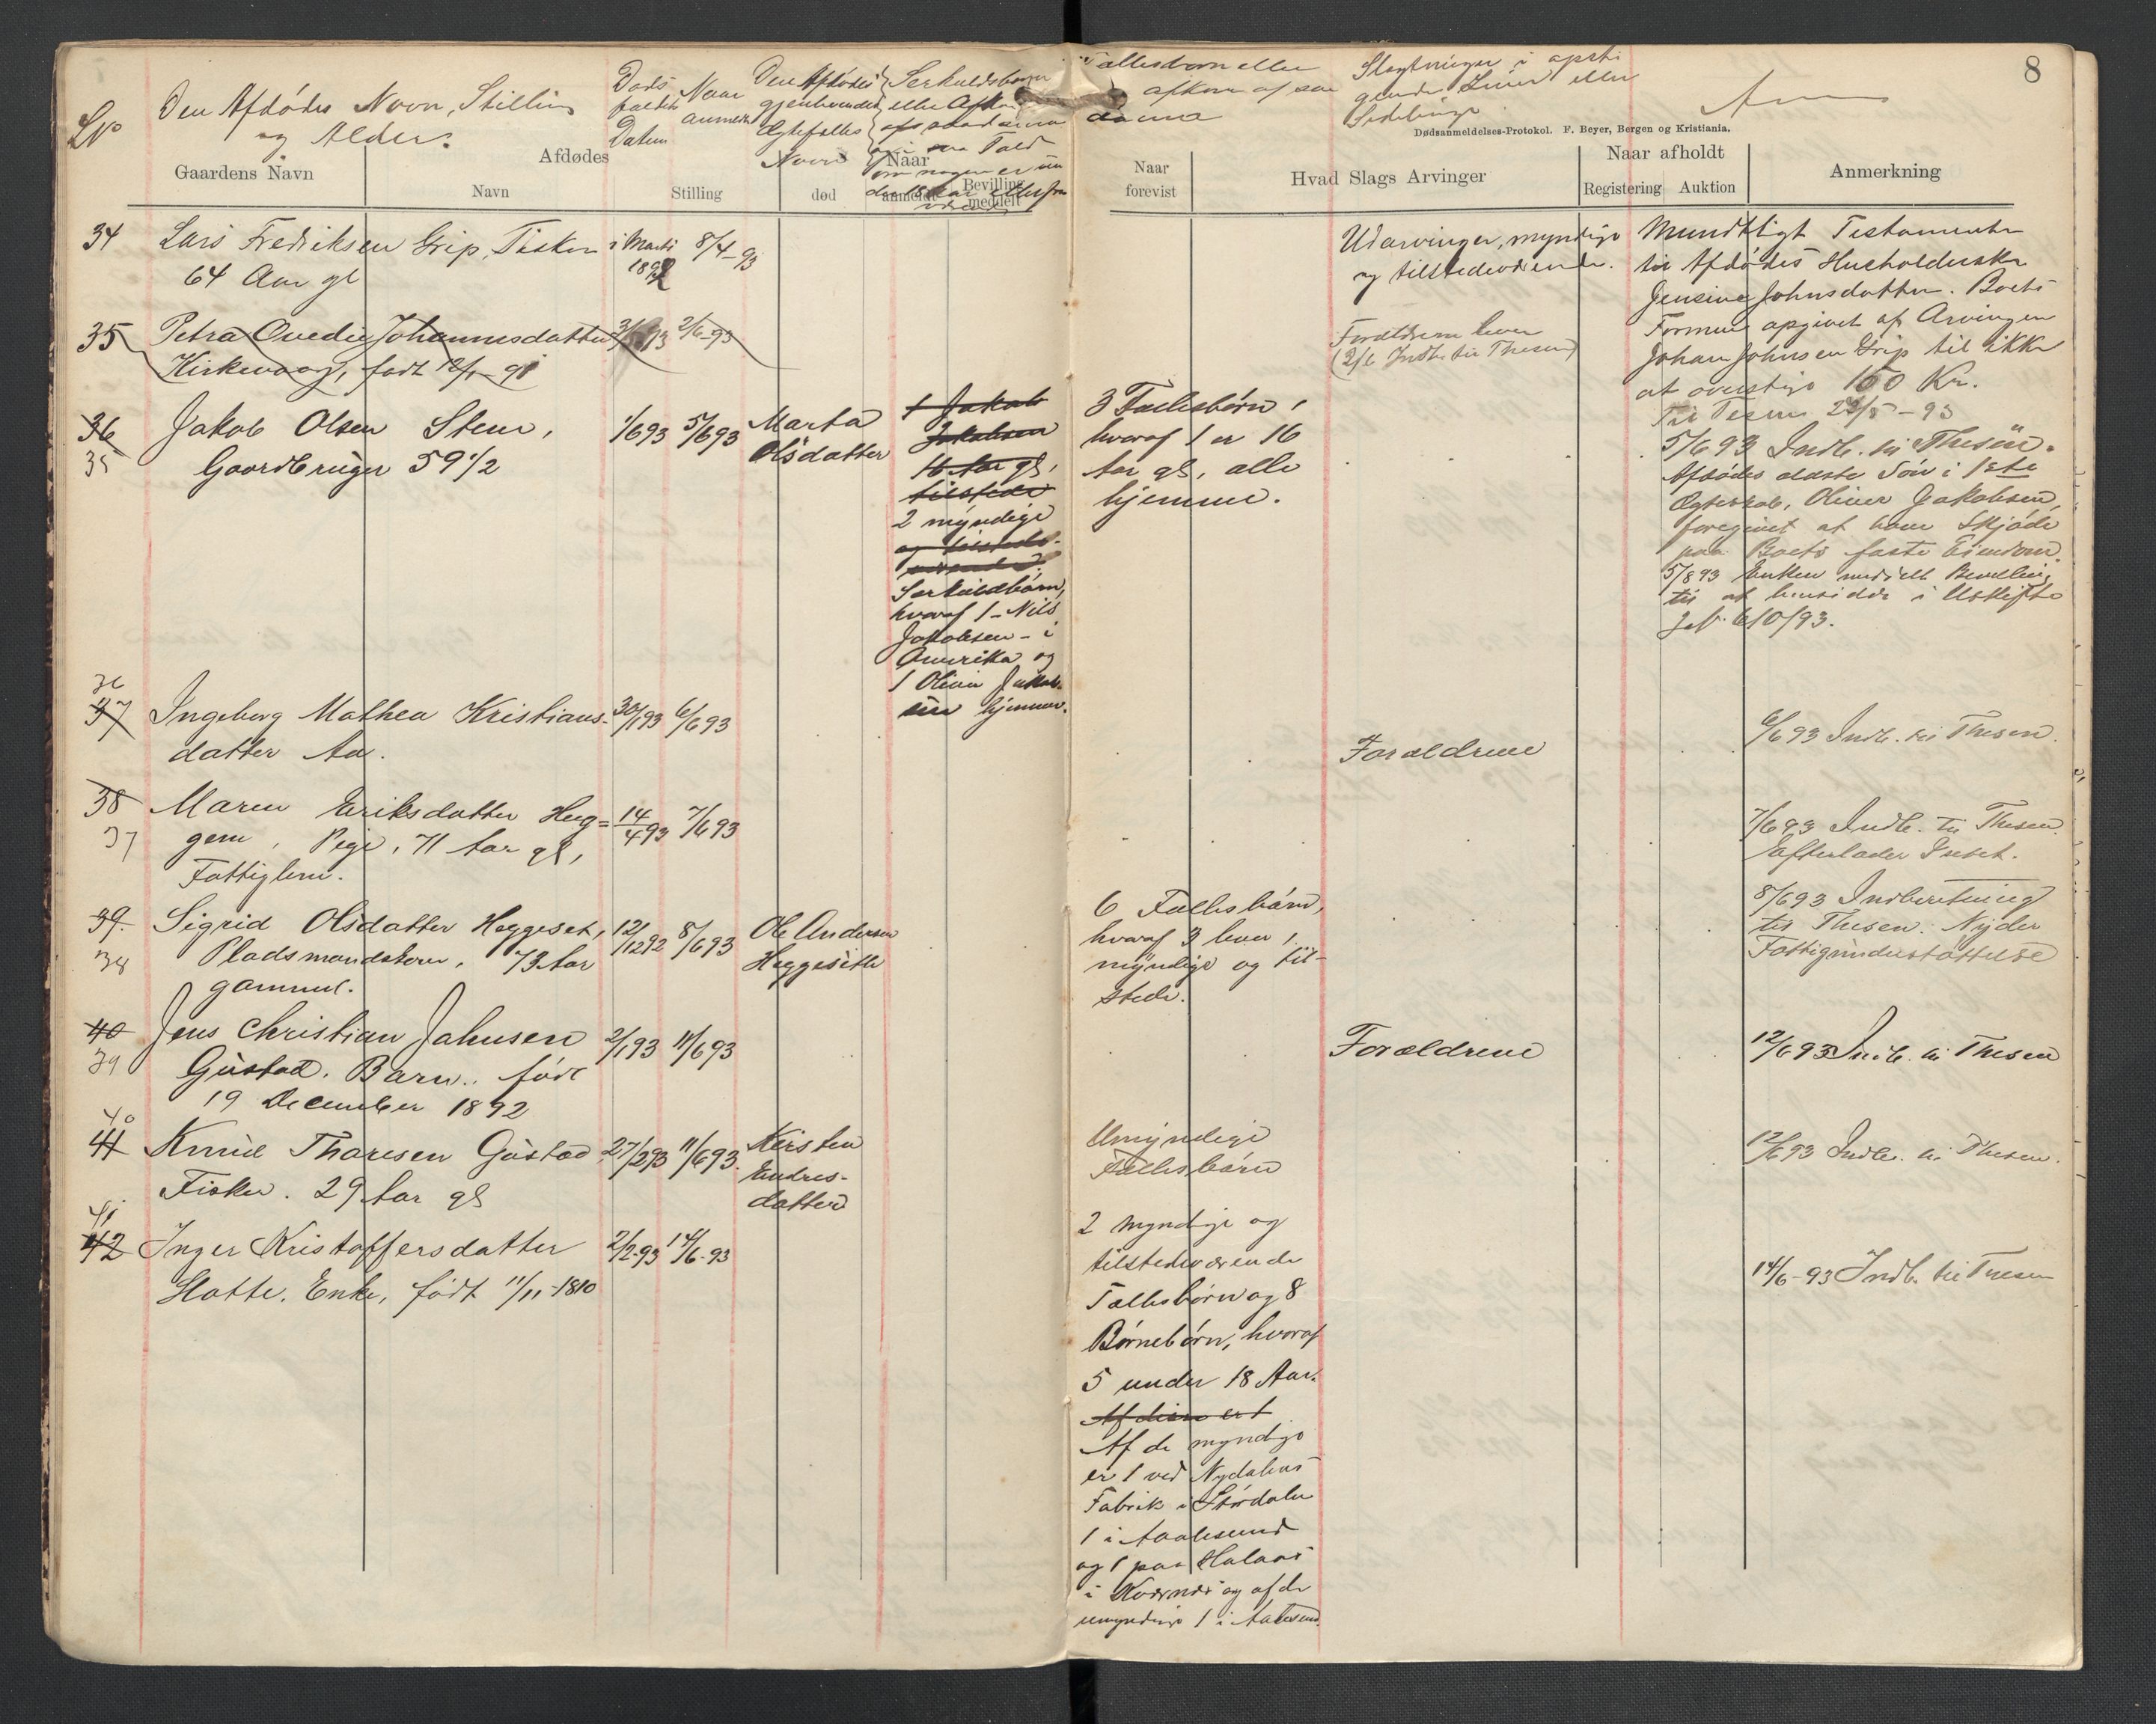 8
LNo
Den Afdødes Navn, Stilling
og Alder.
Døds
faldets
Datum
Naar
anmeldt
Den Afdødes
gjenlevendes
Ægtefælles
Navn
Særkuldsbørn
eller Afkom
Fællesbørn eller
afkom af saa
danne
Slægtninger i opsti
gende Linie eller
Sidelinje
Anm
Dødsanmeldelses-Protokol. F. Beyer, Bergen og Kristiania.
Gaardens Navn
Afdødes
Navn
Stilling
Naar
død
anmeldt
Bevilling
meddelt
Naar
forevist
Hvad Slags Arvinger
Naar afholdt
Registering
Auktion
Anmerkning
34
Lars Fredriksen Grip, Fisker
64 Aar gl
i Marts
1892
8/4-93
Udarvinger, myndige
og tilstedeværende.
Mundtligt Testamente
til Afdødes Husholderske
Jensine Johnsdatter. Boets
Formue opgivet af Arvingen
Johan Johnsen Grip til ikke
at overstige 150 Kr.
35
Petra Ovedie Johannesdatter
Kirkevaag, født 12/1-91
2/6-93
Forældrene lever
(2/6 Indb. til Thesen)
36
35
Jakob Olsen Stene,
Gaardbruger 59 1/2
1/693
5/693
Marta
Olsdatter
1 Jakob
Jakobsen
16 Aar gl,
tilstede
2 myndige
og tilstede-
værende
Særkuldbørn,
hvoraf 1 - Nils
Jakobsen - i
Amerika og
1 Oliver Jakob-
sen hjemme.
3 Fællesbørn,
hvoraf 1 er 16
Aar gl, alle
hjemme.
5/693 Indb. til Thesen.
Afdødes ældste Søn i 1ste
Ægteskab, Oliver Jakobsen,
foregivet at have Skjøde
paa Boets faste Eiendom.
5/893 Enken meddelt Bevilling
til at hensidde i Uskifte
J.N. 610/93.
36
37
Ingeborg Mathea Kristians-
datter Aa.
30/193
6/693
Forældrene
6/693 Indb. til Thesen.
38
37
Maren Eriksdatter Heg=
gem, Pige, 71 Aar gl,
Fattiglem.
14/493
7/693
7/693 Indb. til Thesen.
Efterlader Intet.
39.
38
Sigrid Olsdatter Heggeset,
Pladsmandskone, 73 Aar
gammel.
12/1292
8/693
Ole Andersen
Heggesete
6 Fællesbørn,
hvoraf 3 lever,
myndige og til-
stede.
8/693 Indberetning
til Thesen. Nyder
Fattigunderstøttelse
40
39
Jens Christian Johnsen
Gustad. Barn. født
19 December 1892
2/193
11/693
Forældrene
12/693 Indb. til Thesen
40
41
Knud Thoresen Gustad,
Fisker. 29 Aar gl
27/293
11/693.
Kirsten
Endres-
datter
Umyndige
Fællesbørn
12/693 Indb. til Thesen.
41
42
Inger Kristoffersdatter
Hatte. Enke, født 11/11-1810
2/2-93
14/6-93
2 myndige og
tilstedeværende
Fællesbørn og 8
Børnebørn, hvoraf
5 under 18 Aar.
Af disse er 1
Af de myndige
er 1 ved Nydalens
Fabrik i Størdalen
1 i Aalesund
og 1 paa Halaas
i Kvernes og af de
umyndige 1 i Aalesund.
14/6-93 Indb. til Thesen